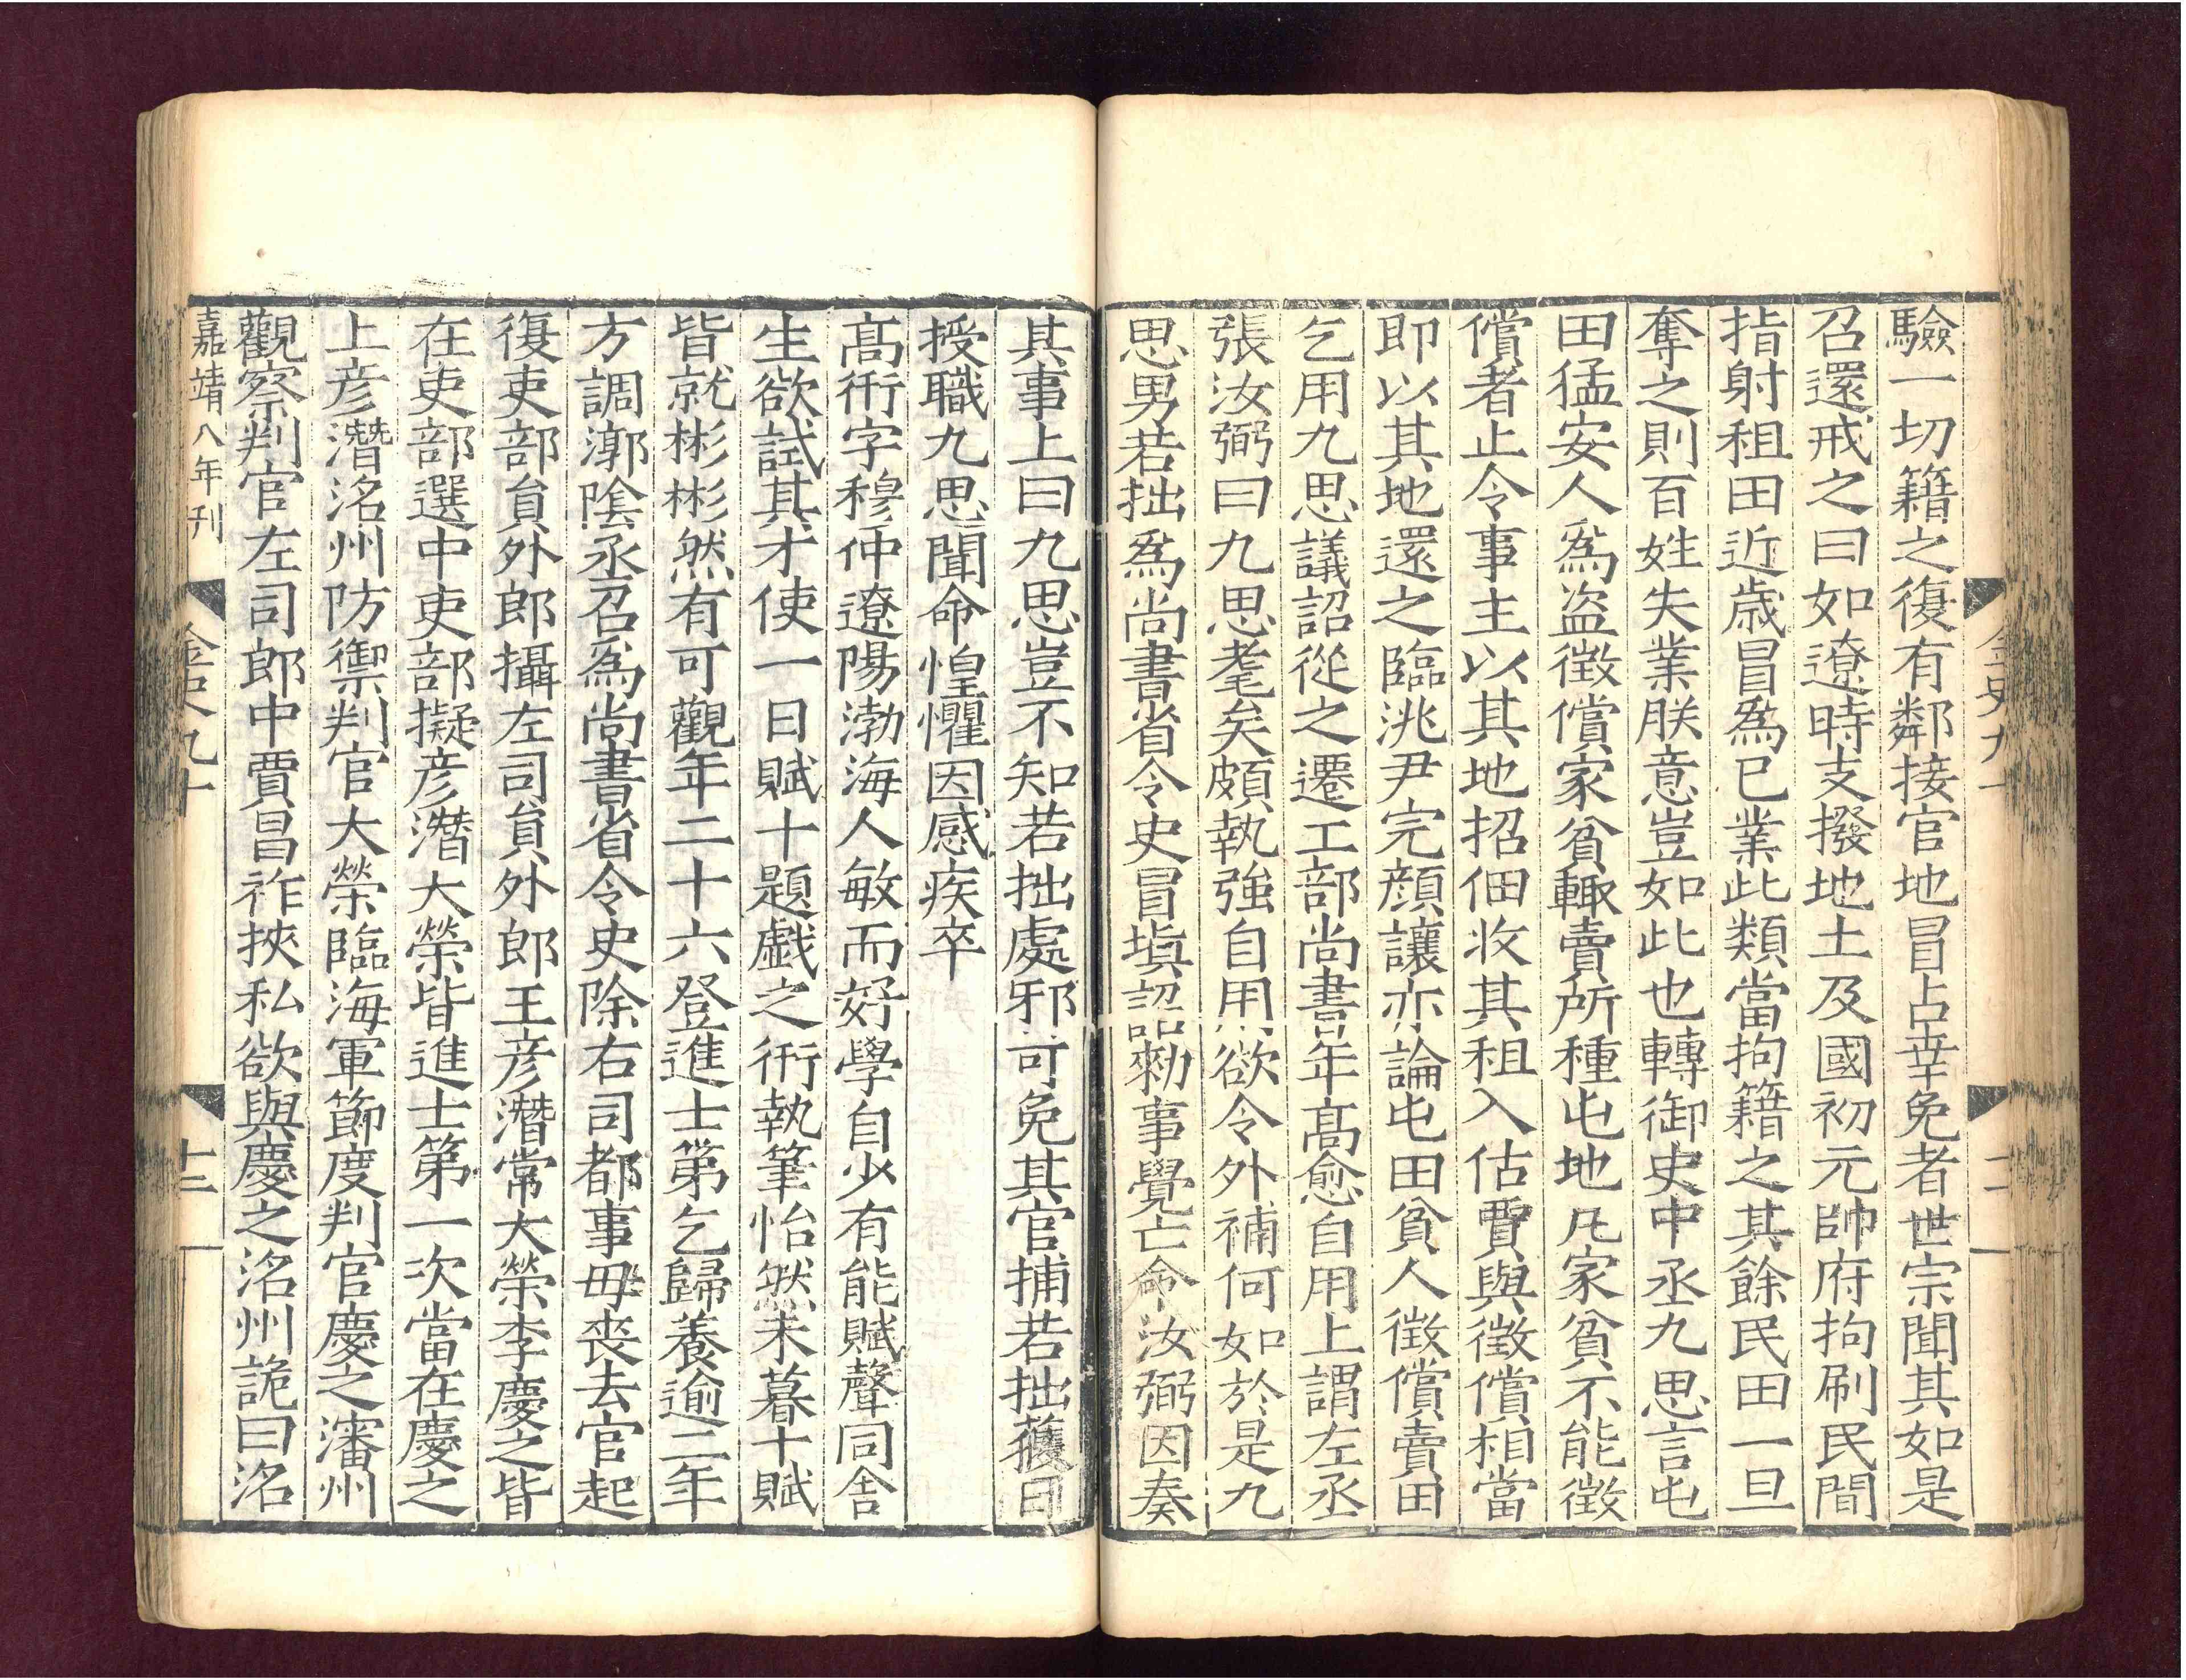 驗一切籍之復有鄰接官地冒占幸免者世宗聞其如是
召還戒之曰如遼時支撥地土及國初元帥府拘刷民間
指射租田近歲冒爲已業此類當拘籍之其餘民田一旦
奪之則百姓失業朕意豈如此也轉御史中丞九思言屯
田猛安人爲盗徴償家貧輙賣所種屯地凡家貧不能徴
償者止令事主以其地招佃收其租入估賈與徴償相當
即以其地還之臨洮尹完顔讓亦論屯田貧人徴償賣田
乞用九思議詔從之遷工部尚書年髙愈自用上謂左丞
張汝弼曰九思耄矣頗執強自用欲令外補何如於是九
思男若拙爲尚書省令史冒塡詔勑事覺亡命汝弼因奏
其事上曰九思豈不知若拙處邪可免其官捕若拙獲日
授職九思聞命惶懼因感疾卒
髙衎字穆仲遼陽渤海人敏而好學自少有能賦聲同舍
生欲試其才使一日賦十題戯之衎執筆怡然未暮十賦
皆就彬彬然有可觀年二十六登進士第乞歸養逾二年
方調漷陰丞召爲尚書省令史除右司都事毋喪去官起
復吏部貟外郎攝左司貟外郎王彦潛常大榮李慶之皆
在吏部選中吏部擬彦潛大榮皆進士第一次當在慶之
上彦潛洺州防禦判官大榮臨海軍節度判官慶之瀋州
觀察判官左司郎中賈昌祚挾私欲與慶之洺州詭曰洺
嘉靖八年刊
金史九十
十三